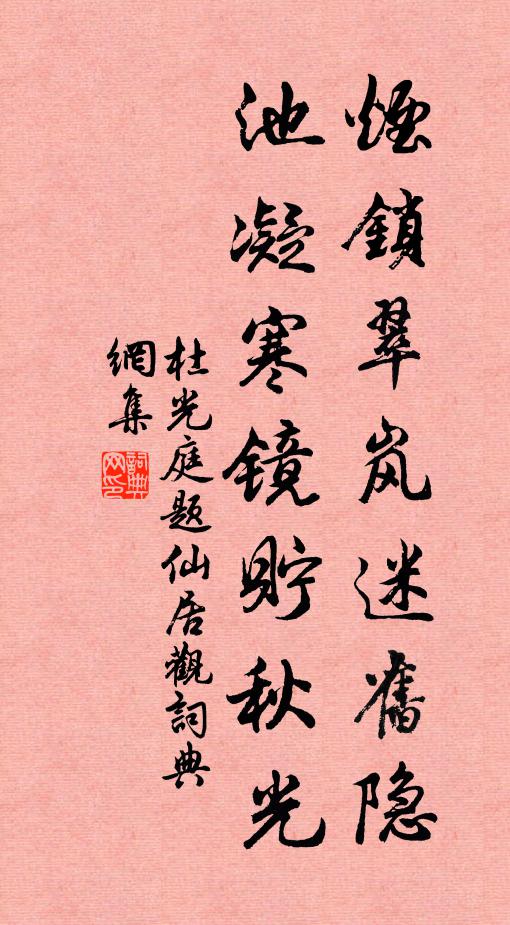 煙鎖翠岚迷舊隐
池凝寒镜貯秋光
杜光庭題仙居觀詞典
網集
詞典網印